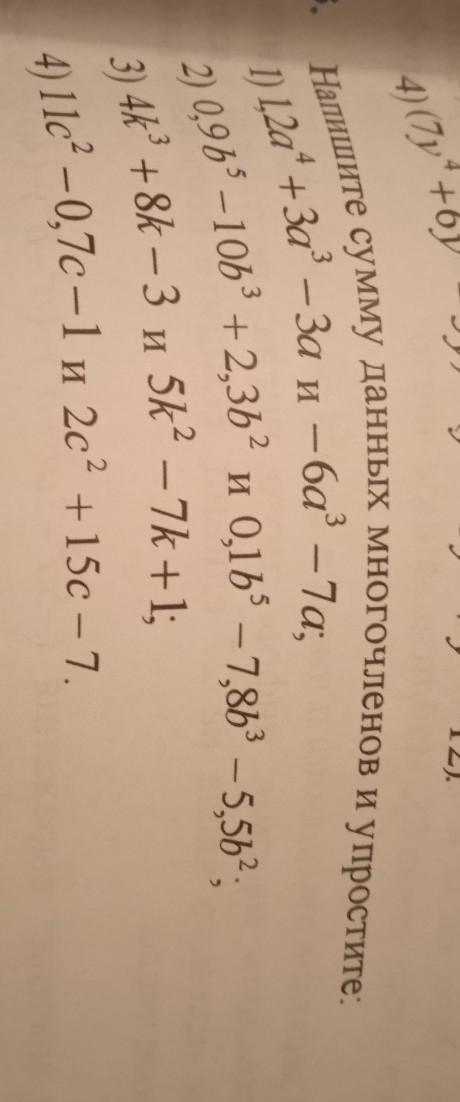 4) (7y⁴ + 6y
12).
Напишите сумму данных многочленов и упростите:
1) 1,2a⁴ + 3a³ − 3a и −6a³ − 7a;
2) 0,9b⁵ − 10b³ + 2,3b² и 0,1b⁵ − 7,8b³ − 5,5b²;
3) 4k³ + 8k − 3 и 5k² − 7k + 1;
4) 11c² − 0,7c − 1 и 2c² + 15c − 7.